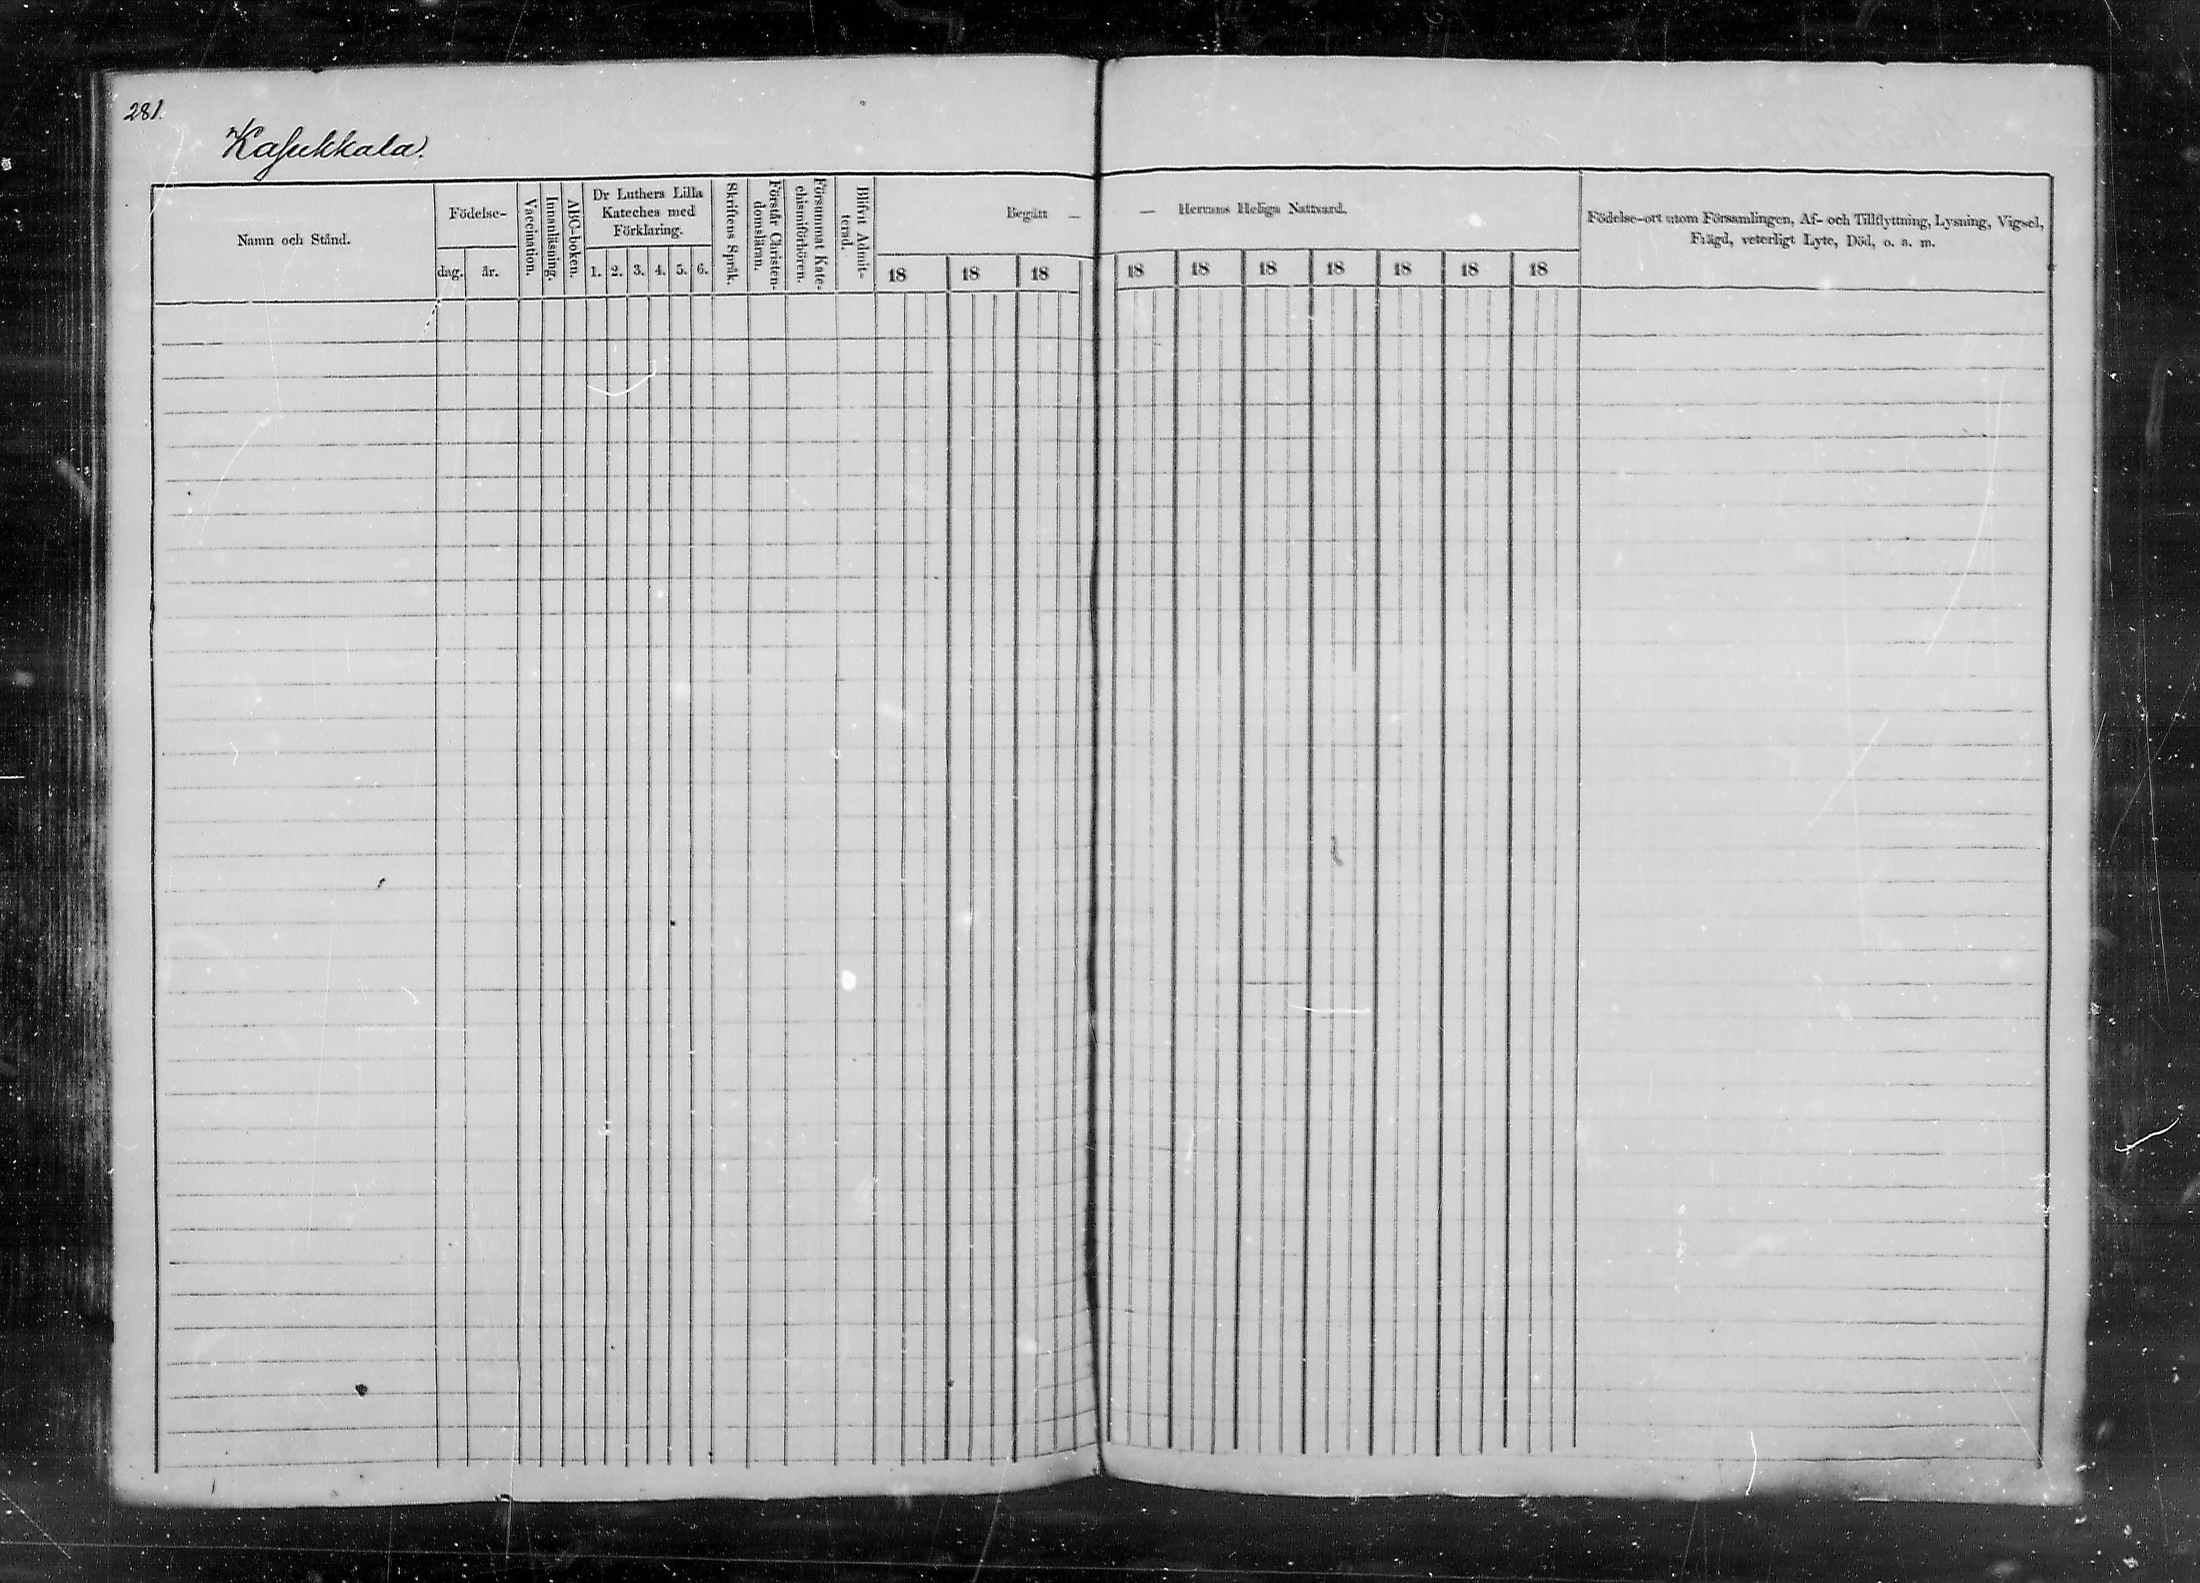 281.
Kasukkala.
Namn och Stånd.
Födelse-
dag.
år.
Vaccination.
Innanläsning.
ABC-boken.
Dr Luthers Lilla
Kateches med
Förklaring.
1. 2. 3. 4. 5. 6.
Skriftens Språk.
Förstår Christen-
domsläran.
Försummat Kate-
chismiförhören.
Blifvit Admit-
terad.
Begått —
18 18 18
— Herrans Heliga Nattvard.
18 18 18 18 18 18 18
Födelse-ort utom Församlingen, Af- och Tillflyttning, Lysning, Vigsel,
Frägd, veterligt Lyte, Död, o. s. m.